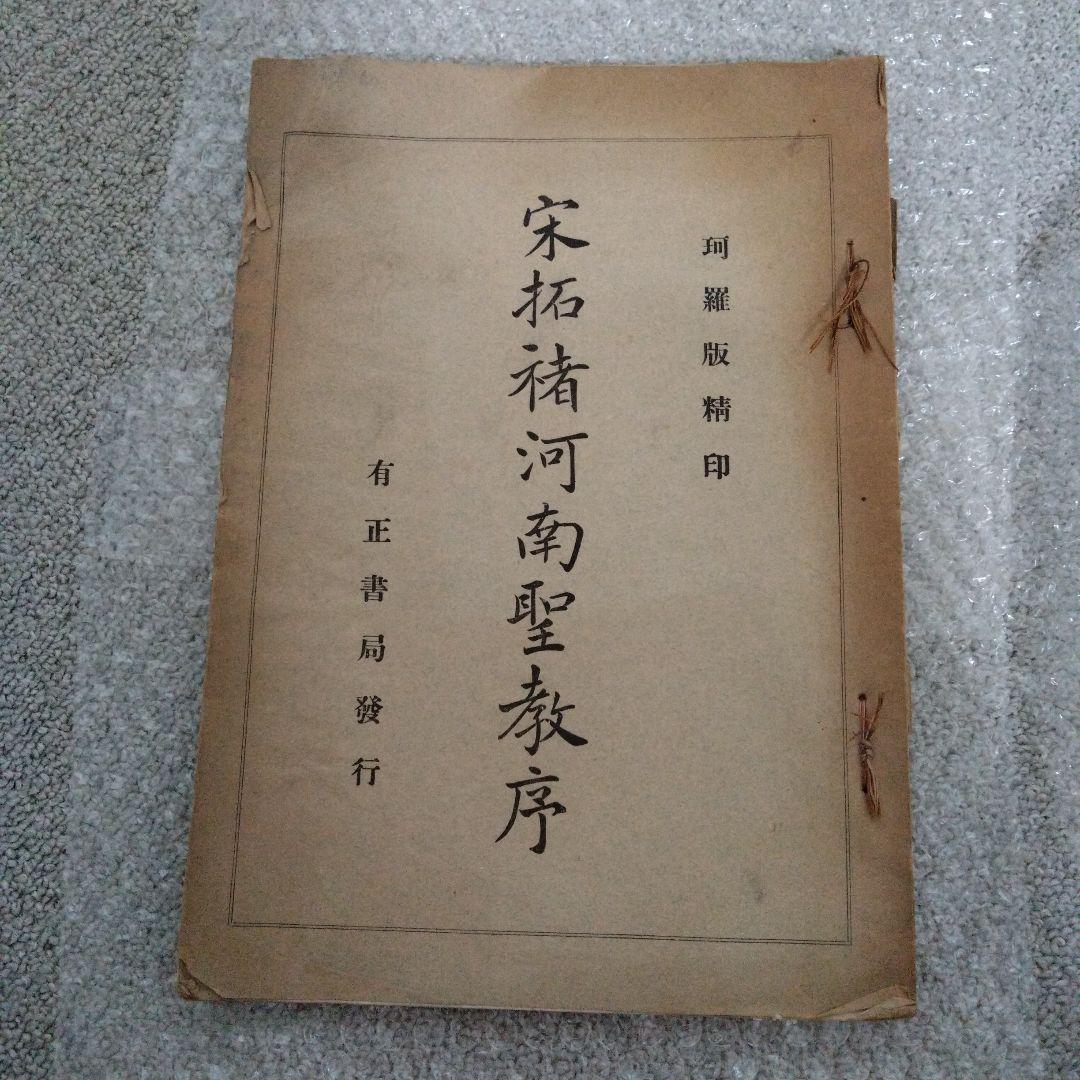 珂羅版精印
宋拓褚河南聖教序
有正書局發行